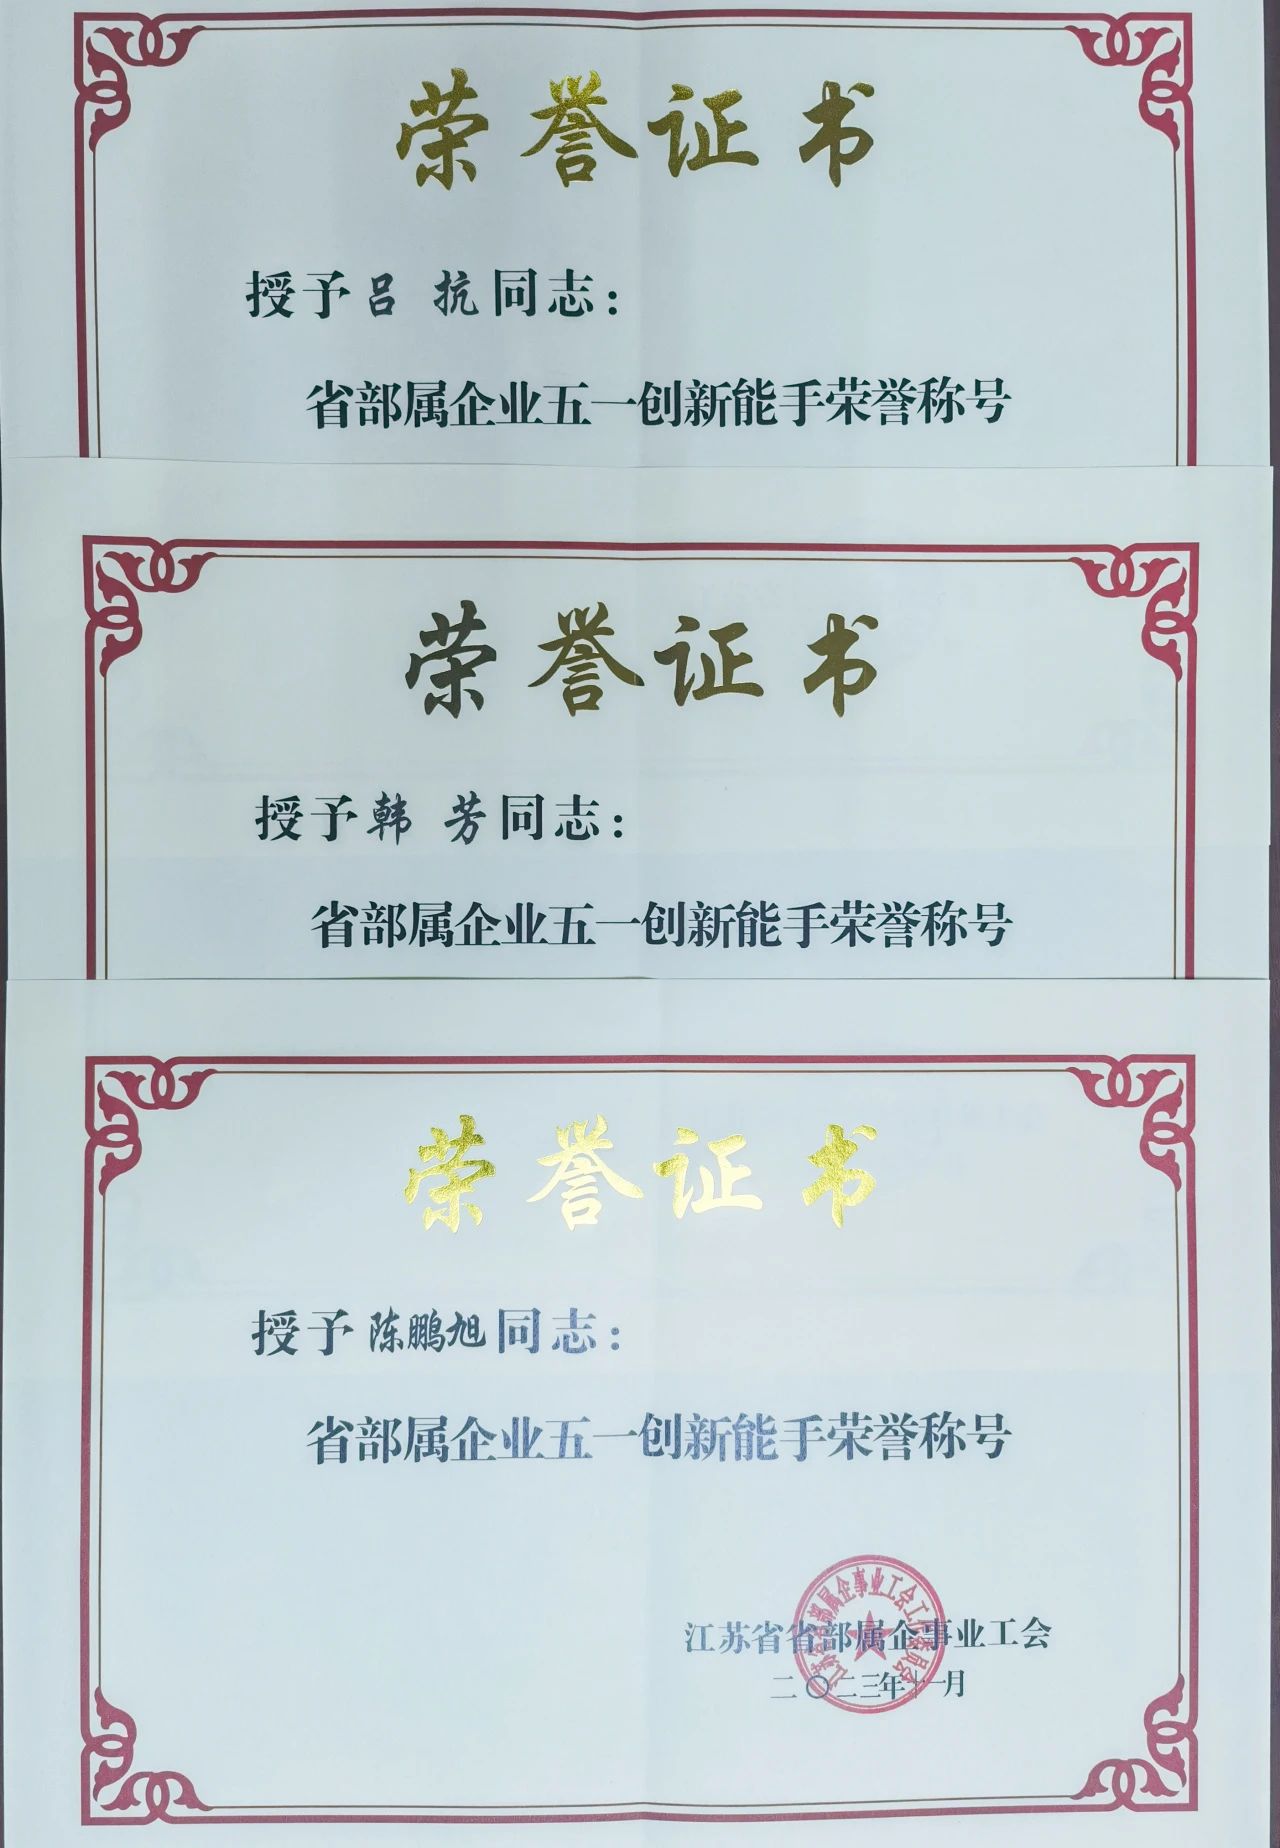 荣誉证书
授予吕 抗同志：
省部属企业五一创新能手荣誉称号
荣誉证书
授予韩 芳同志：
省部属企业五一创新能手荣誉称号
荣誉证书
授予陈鹏旭同志：
省部属企业五一创新能手荣誉称号
江苏省省部属企事业工会工作委员会
江苏省省部属企事业工会
二〇二三年十一月